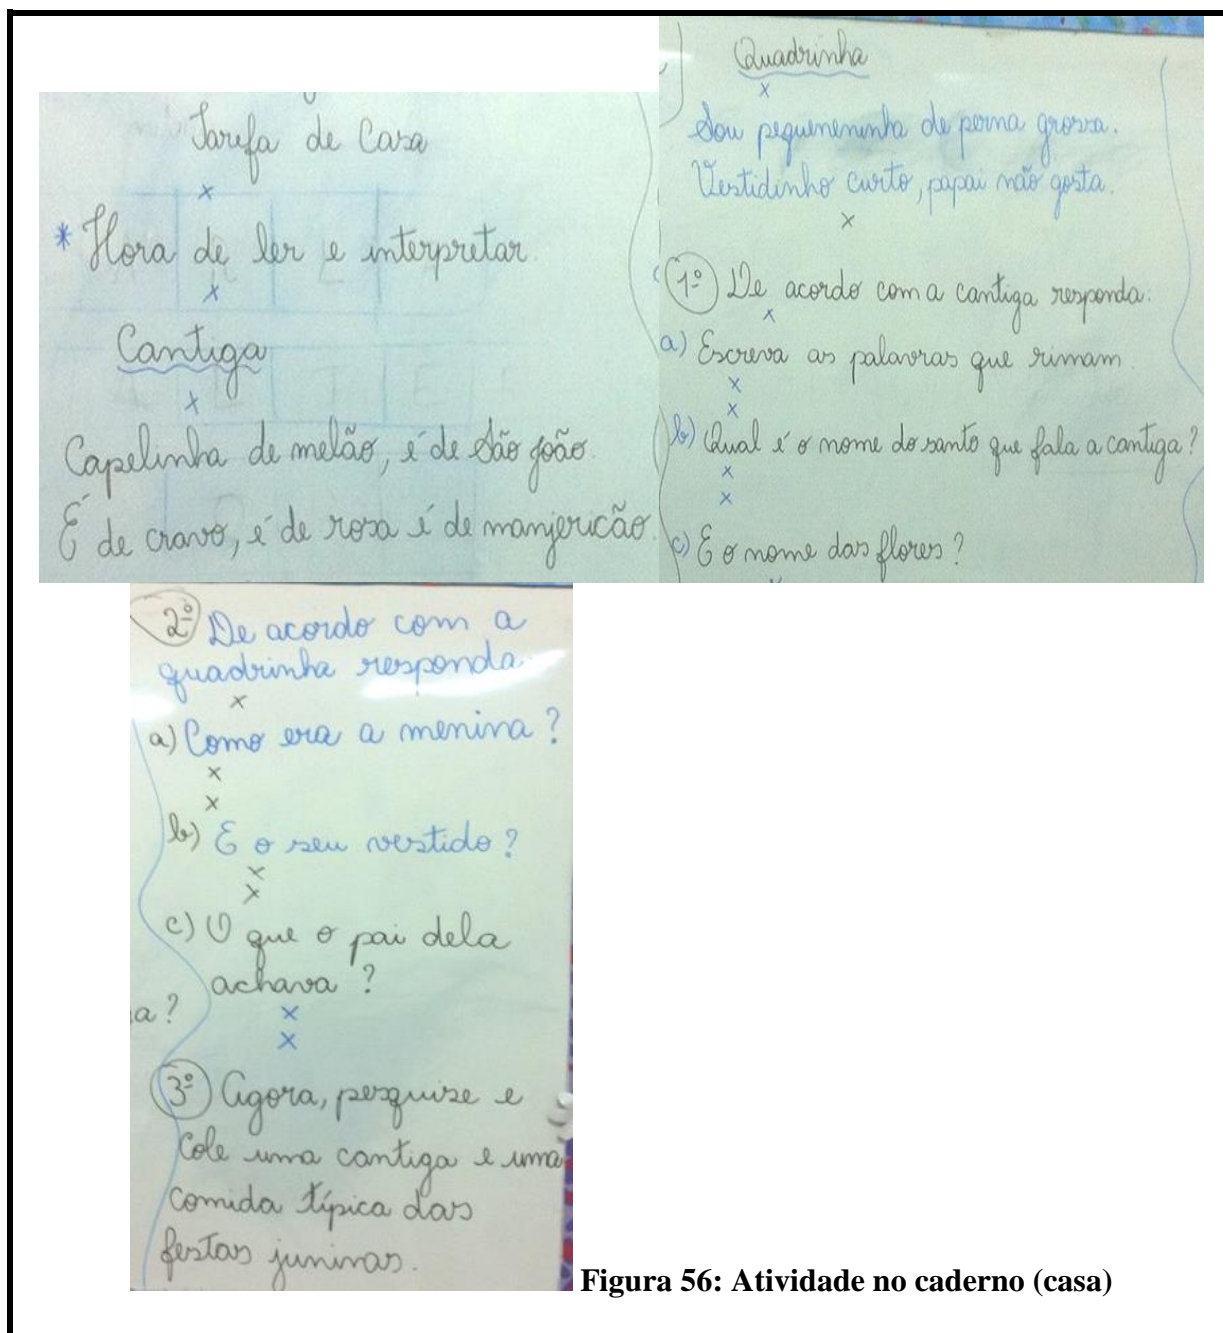 Tarefa de Casa
x
* Hora de ler e interpretar.
x
Cantiga
x
Capelinha de melão, é de São João.
É de cravo, é de rosa é de manjericão.
Quadrinha
x
Sou pequenininha de perna grossa.
Vestidinho curto, papai não gosta.
x
1º) De acordo com a cantiga responda:
x
a) Escreva as palavras que rimam.
x
x
b) Qual é o nome do santo que fala a cantiga?
x
x
c) E o nome das flores?
2º) De acordo com a
quadrinha responda.
x
a) Como era a menina?
x
x
b) E o seu vestido?
x
x
c) O que o pai dela
achava?
a?
x
x
3º) Agora, pesquise e
cole uma cantiga e uma
comida típica das
festas juninas.
Figura 56: Atividade no caderno (casa)